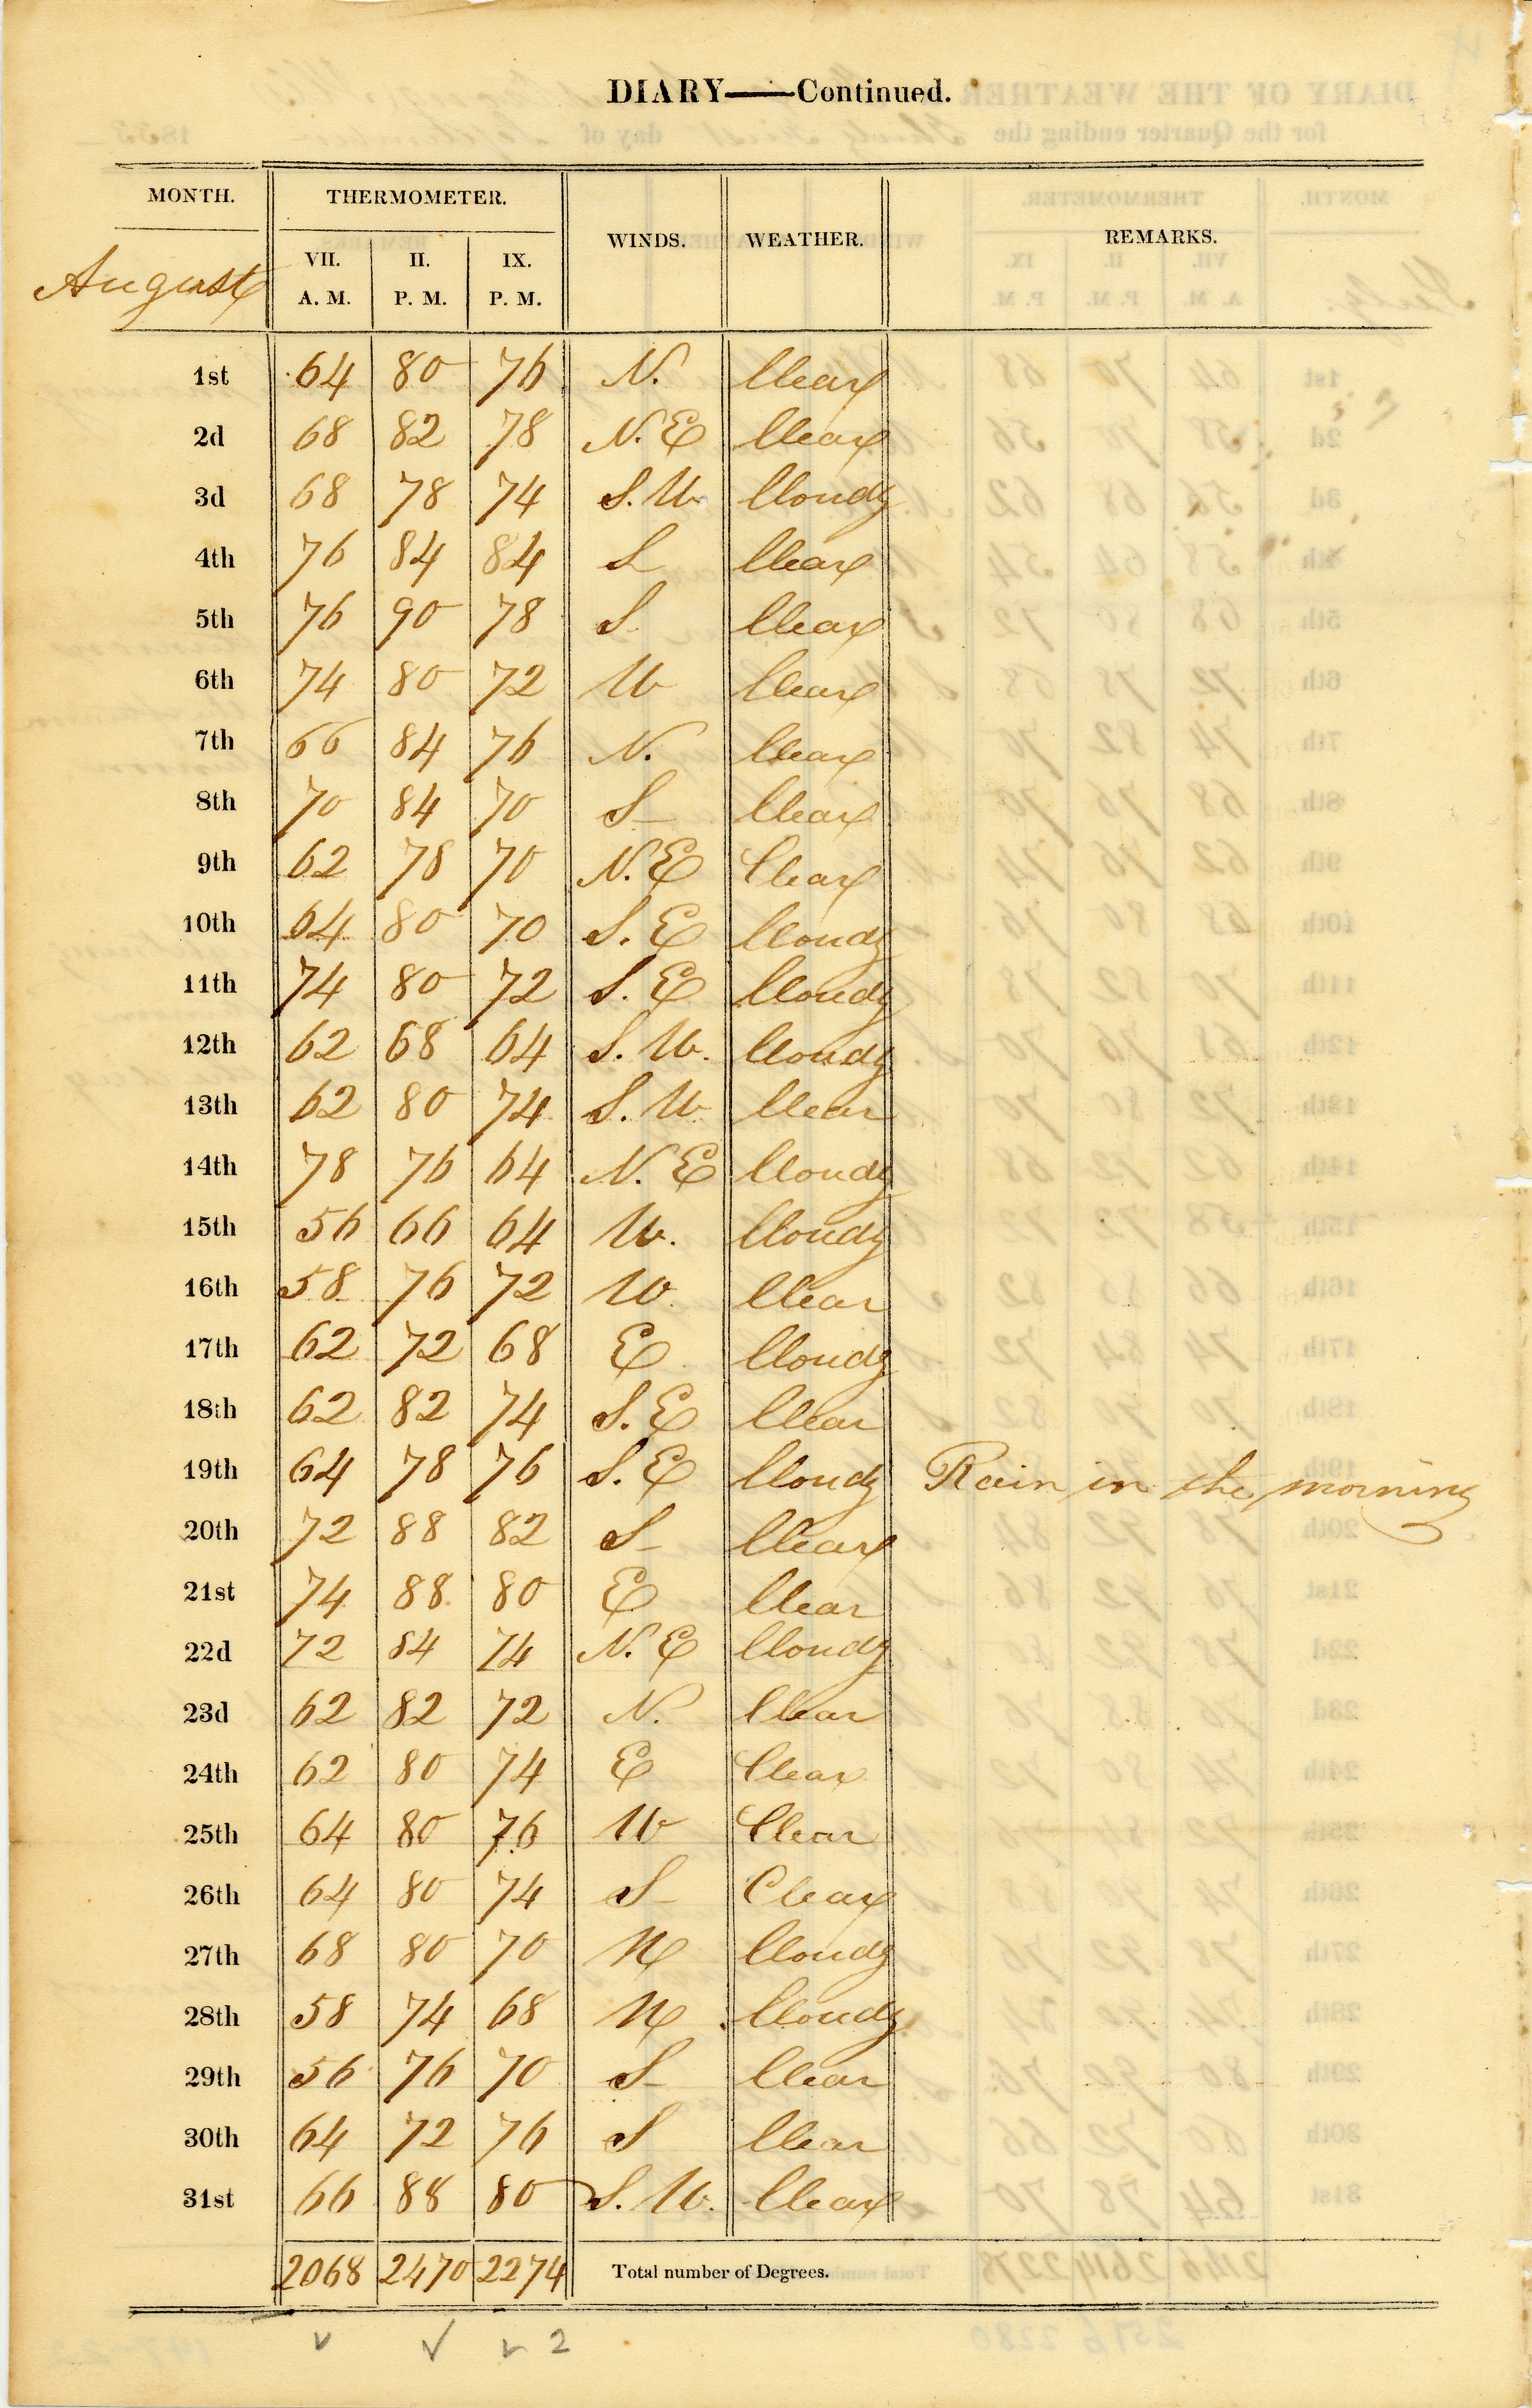 DIARY——Continued.
MONTH. THERMOMETER. WINDS. WEATHER. REMARKS.
August VII. A. M. II. P. M. IX. P. M.
1st 64 80 76 N. Clear
2d 68 82 78 N. E Clear
3d 68 78 74 S. W. Cloudy
4th 76 84 84 S Clear
5th 76 90 78 S. Clear
6th 74 80 72 W Clear
7th 66 84 76 N. Clear
8th 70 84 70 S Clear
9th 62 78 70 N. E Clear
10th 64 80 70 S. E Cloudy
11th 74 80 72 S. E Cloudy
12th 62 68 64 S. W. Cloudy
13th 62 80 74 S. W Clear
14th 78 76 64 N. E Cloudy
15th 56 66 64 W. Cloudy
16th 58 76 72 W. Clear
17th 62 72 68 E Cloudy
18th 62 82 74 S. E Clear
19th 64 78 76 S. E Cloudy Rain in the morning
20th 72 88 82 S Clear
21st 74 88 80 E Clear
22d 72 84 74 N. E Cloudy
23d 62 82 72 N. Clear
24th 62 80 74 E Clear
25th 64 80 76 W Clear
26th 64 80 74 S Clear
27th 68 80 70 N Cloudy
28th 58 74 68 N Cloudy
29th 56 76 70 S Clear
30th 64 72 76 S Clear
31st 66 88 80 S. W. Clear
2068 2470 2274 Total number of Degrees.
2